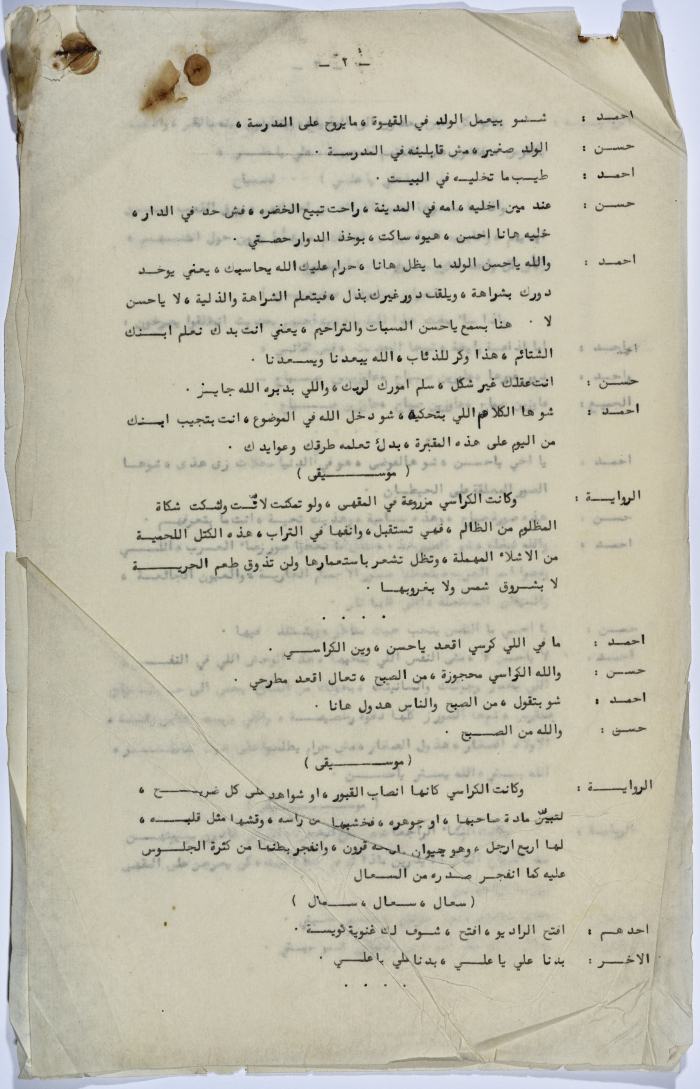 - ٢ -
احمد : شو بيعمل الولد في القهوة ، مايروح على المدرسة ،
حسن : الولد صغير ، مش قابلينه في المدرسة .
احمد : طيب ما تخليه في البيت .
حسن : عند مين اخليه ، امه في المدينة ، راحت تبيع الخضره ، فش حد في الدار ،
خليه هانا احسن ، هيوه ساكت ، بوخذ الدوار حصتي .
احمد : والله ياحسن الولد ما يظل هانا ، حرام عليك الله يحاسبك ، يعني يوخد
دورك بشراهة ، ويلقف دور غيرك بذل ، فيتعلم الشراهة والذلية ، لا ياحسن
لا . هنا بسمع ياحسن المسبات والتراحيم ، يعني انت بدك تعلم ابنك
الشتائم ، هذا وكر للذئاب ، الله يبعدنا ويسعدنا .
حسن : انت عقلك غير شكل ، سلم امورك لربك ، واللي بدبره الله جايز .
احمد : شو ها الكلام اللي بتحكيه ، شو دخل الله في الموضوع ، انت بتجيب ابنك
من اليوم على هذه المقبرة ، بدل تعلمه طرقك وعوايدك .
( موسيقى )
الرواية : وكانت الكراسي مزروعة في المقهى ، ولو تمكنت لانّت ولشكت شكاة
المظلوم من الظالم ، فهي تستقبل ، وانفها في التراب ، هذه الكتل اللحمية
من الاشلاء المهملة ، وتظل تشعر باستعمارها ولن تذوق طعم الحرية
لا بشروق شمس ولا بغروبها .
. . . .
احمد : ما في اللي كرسي اقعد ياحسن ، وين الكراسي .
حسن : والله الكراسي محجوزة ، من الصبح ، تعال اقعد مطرحي .
احمد : شو بتقول ، من الصبح والناس هدول هانا .
حسن : والله من الصبح .
( موسيقى )
الرواية : وكانت الكراسي كانها انصاب القبور ، او شواهد على كل ضريح ،
لتبيّن مادة صاحبها ، او جوهره ، فخشبها من راسه ، وقشها مثل قلبه ،
لها اربع ارجل ، وهو حيوان له قرون ، وانفجر بطنها من كثرة الجلوس
عليه كما انفجر صدره من السعال
( سعال ، سعال ، سعال )
احدهم : افتح الراديو ، افتح ، شوف لك غنوية كويسة .
الاخر : بدنا علي يا علي ، بدنا علي يا علي .
. . . .